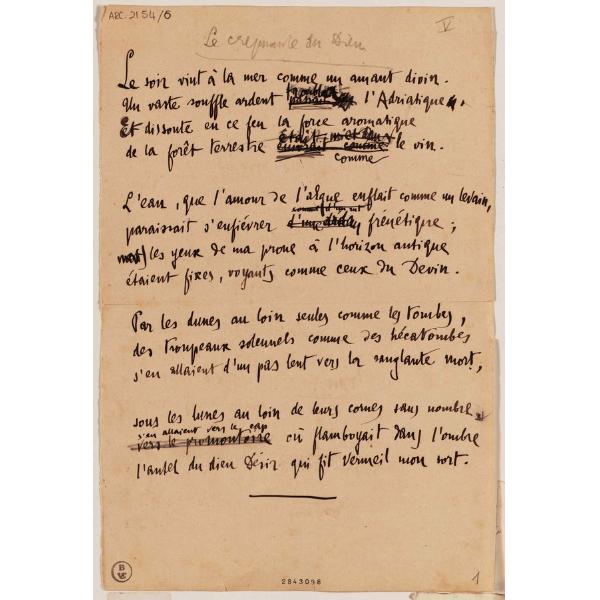 ARC. 21 54/6
IV
Le crépuscule du Dieu
Le soir vint à la mer comme un amant divin.
Un vaste souffle ardent troublait l'Adriatique,
Et dissoute en ce feu la force aromatique
était
de la forêt terrestre enivrait comme le vin.
comme
L'eau, que l'amour de l'algue enflait comme un levain,
paraissait s'enfiévrer d'une frénétique ;
mais les yeux de ma proue à l'horizon antique
étaient fixes, voyants comme ceux du Devin.
Par les dunes au loin seules comme les tombes,
des troupeaux solennels comme des hécatombes
s'en allaient d'un pas lent vers la sanglante mort,
sous les lunes au loin de leurs cornes sans nombre
s'en allaient vers les cap
vers le promontoire où flamboyait dans l'ombre
l'autel du dieu Désir qui fit vermeil mon sort.
2843098
1